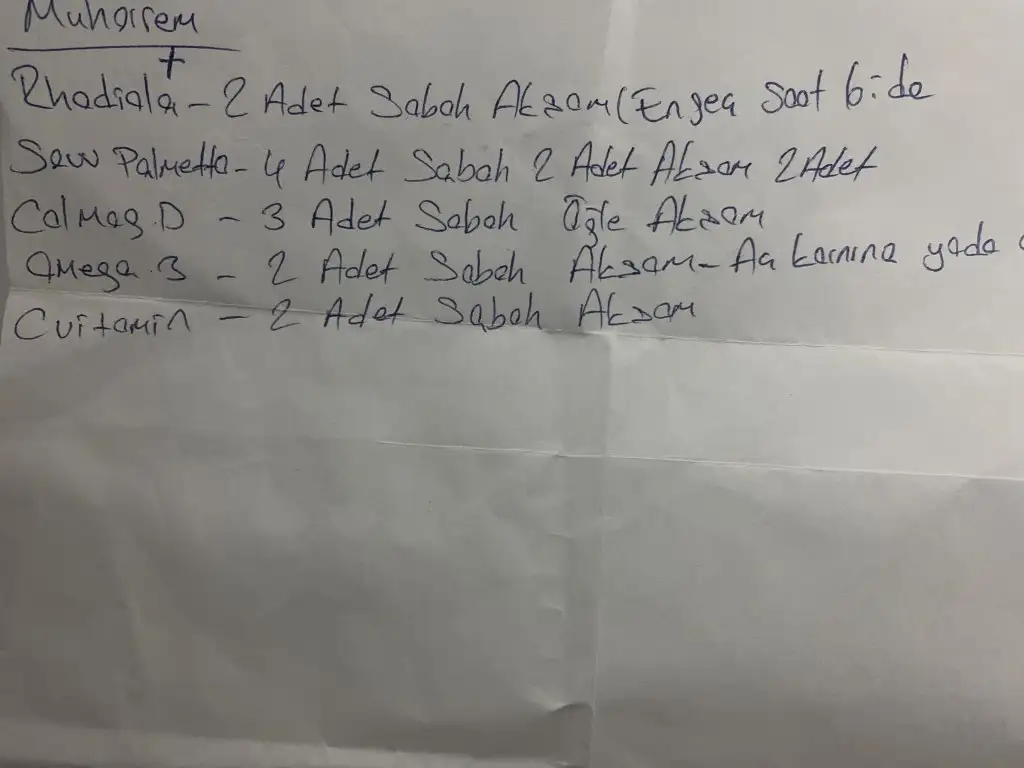 Muharrem
+
Rhadiala - 2 Adet Sabah Aksam (Engea Saat 6:da
Saw Palmetto - 4 Adet Sabah 2 Adet Aksam 2 Adet
Cal Mag.D - 3 Adet Sabah Öğle Aksam
Omega.3 - 2 Adet Sabah Aksam - Aa karnına yada
C vitamin - 2 Adet Sabah Aksam